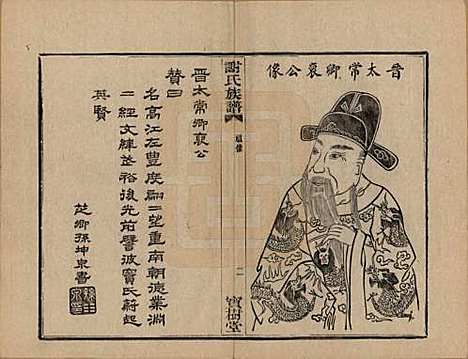 晉太常卿裒公像
謝氏族譜
祖像
一
寶樹堂
晉太常卿裒公
贊曰
名高江左豐度
望重南朝德業淵
經文緯並裕後光前譬彼竇氏蔚起
英賢
孫坤泉書